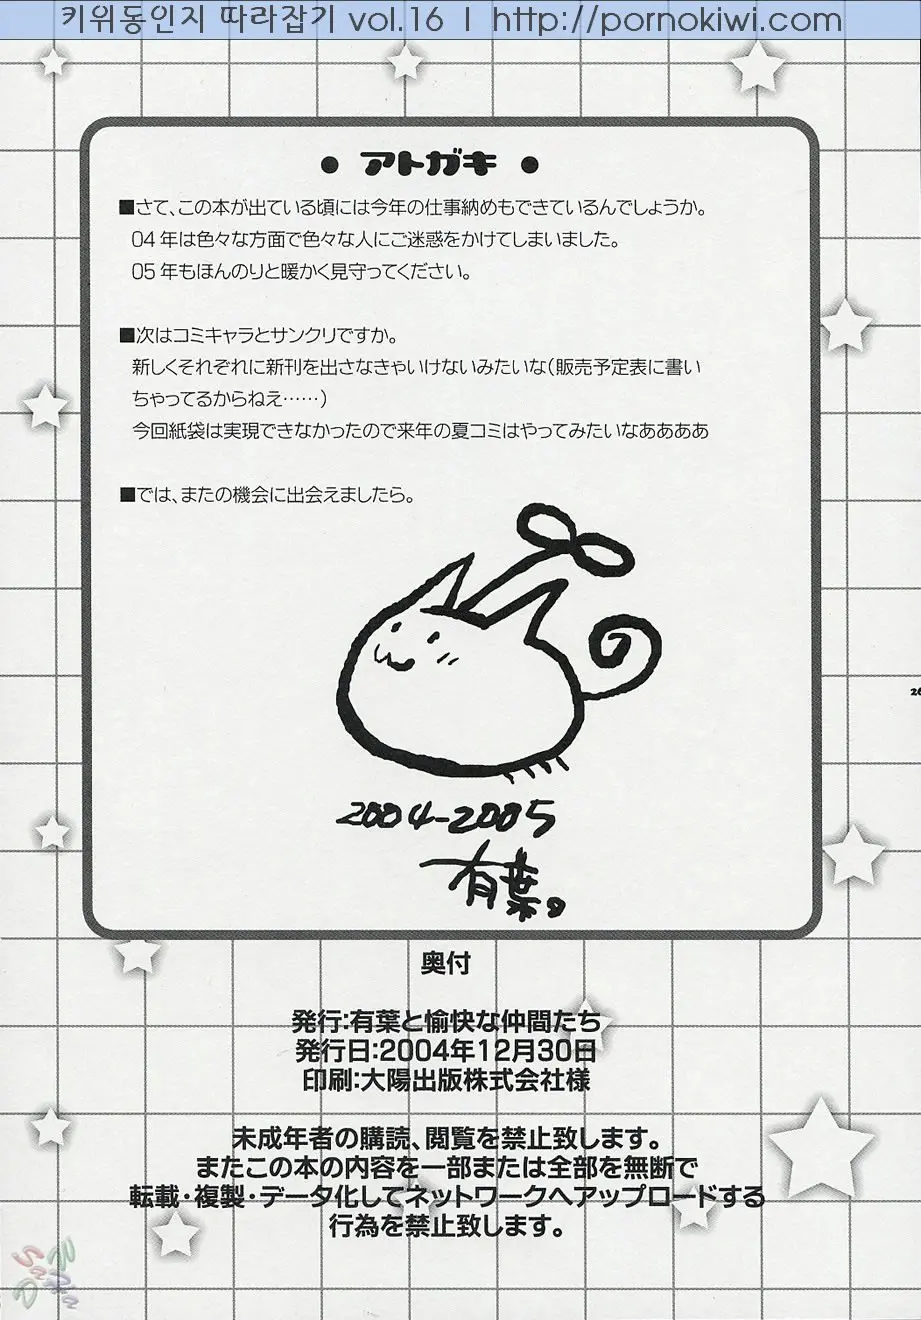 키위동인지 따라잡기 vol.16 | http://pornokiwi.com
• アトガキ •
■さて、この本が出ている頃には今年の仕事納めもできているんでしょうか。
04年は色々な方面で色々な人にご迷惑をかけてしまいました。
05年もほんのりと暖かく見守ってください。
■次はコミキャラとサンクリですか。
新しくそれぞれに新刊を出さなきゃいけないみたいな(販売予定表に書い
ちゃってるからねえ……)
今回紙袋は実現できなかったので来年の夏コミはやってみたいなああああ
■では、またの機会に出会えましたら。
2004-2005
有葉
26
奥付
発行:有葉と愉快な仲間たち
発行日:2004年12月30日
印刷:大陽出版株式会社様
未成年者の購読、閲覧を禁止致します。
またこの本の内容を一部または全部を無断で
転載・複製・データ化してネットワークへアップロードする
行為を禁止致します。